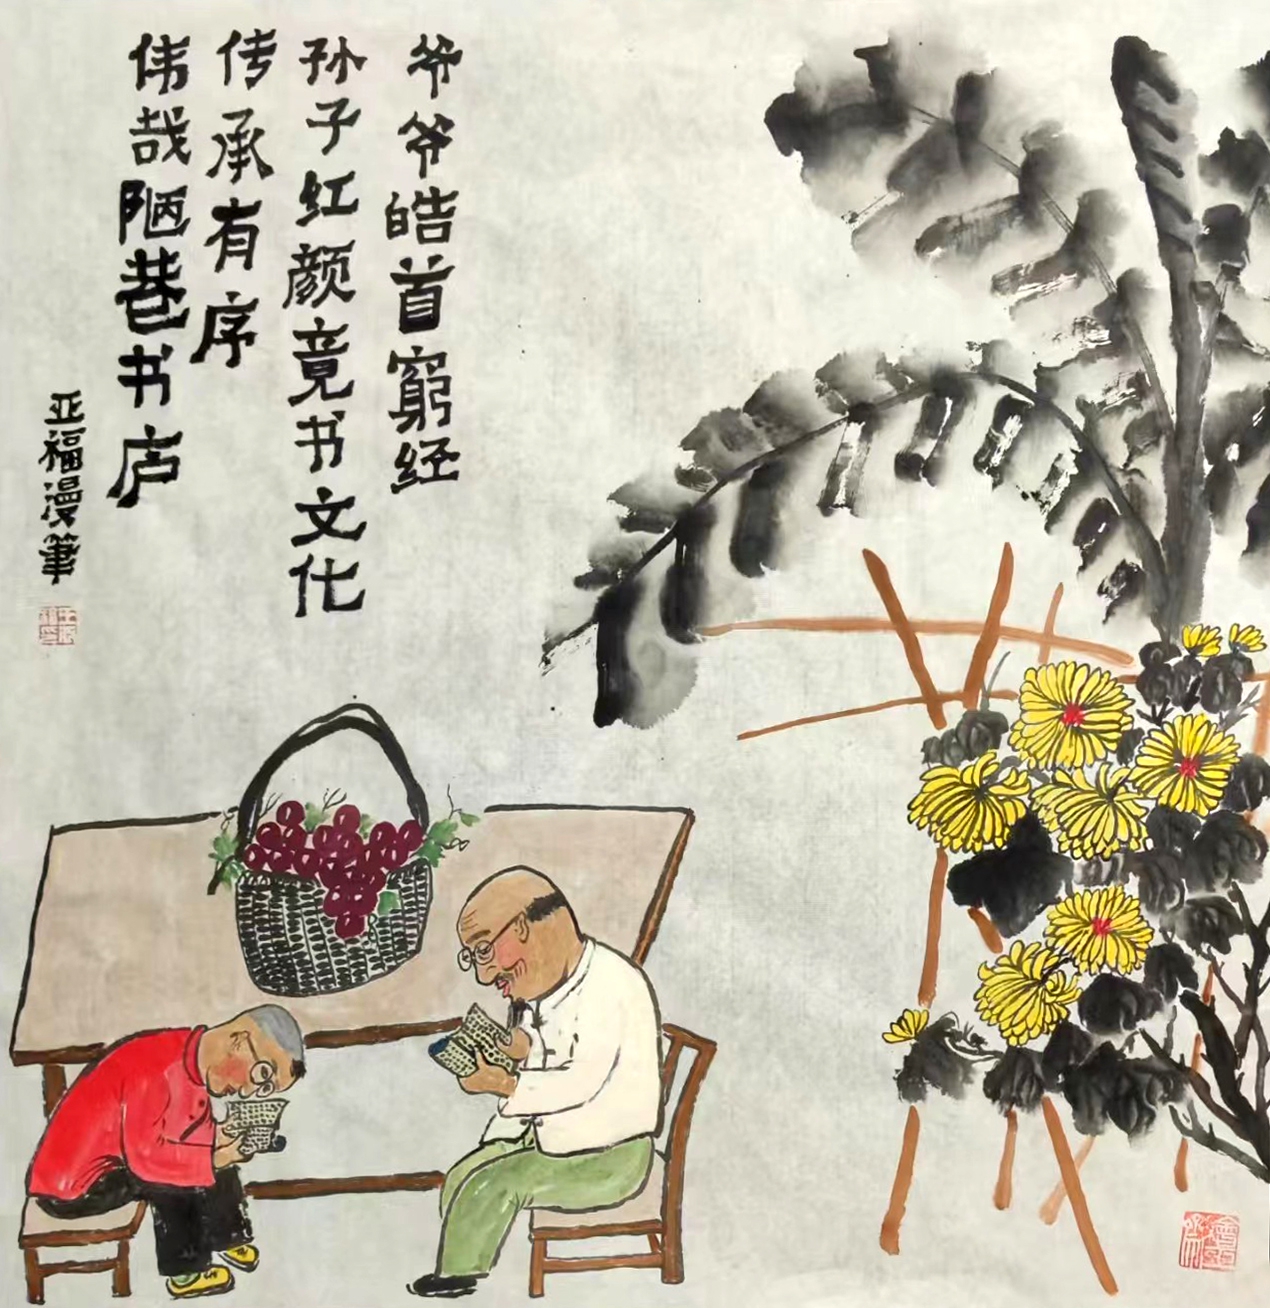 爷爷皓首窮经
孙子红颜竟书文化
传承有序
伟哉陋巷书庐
亚福漫筆